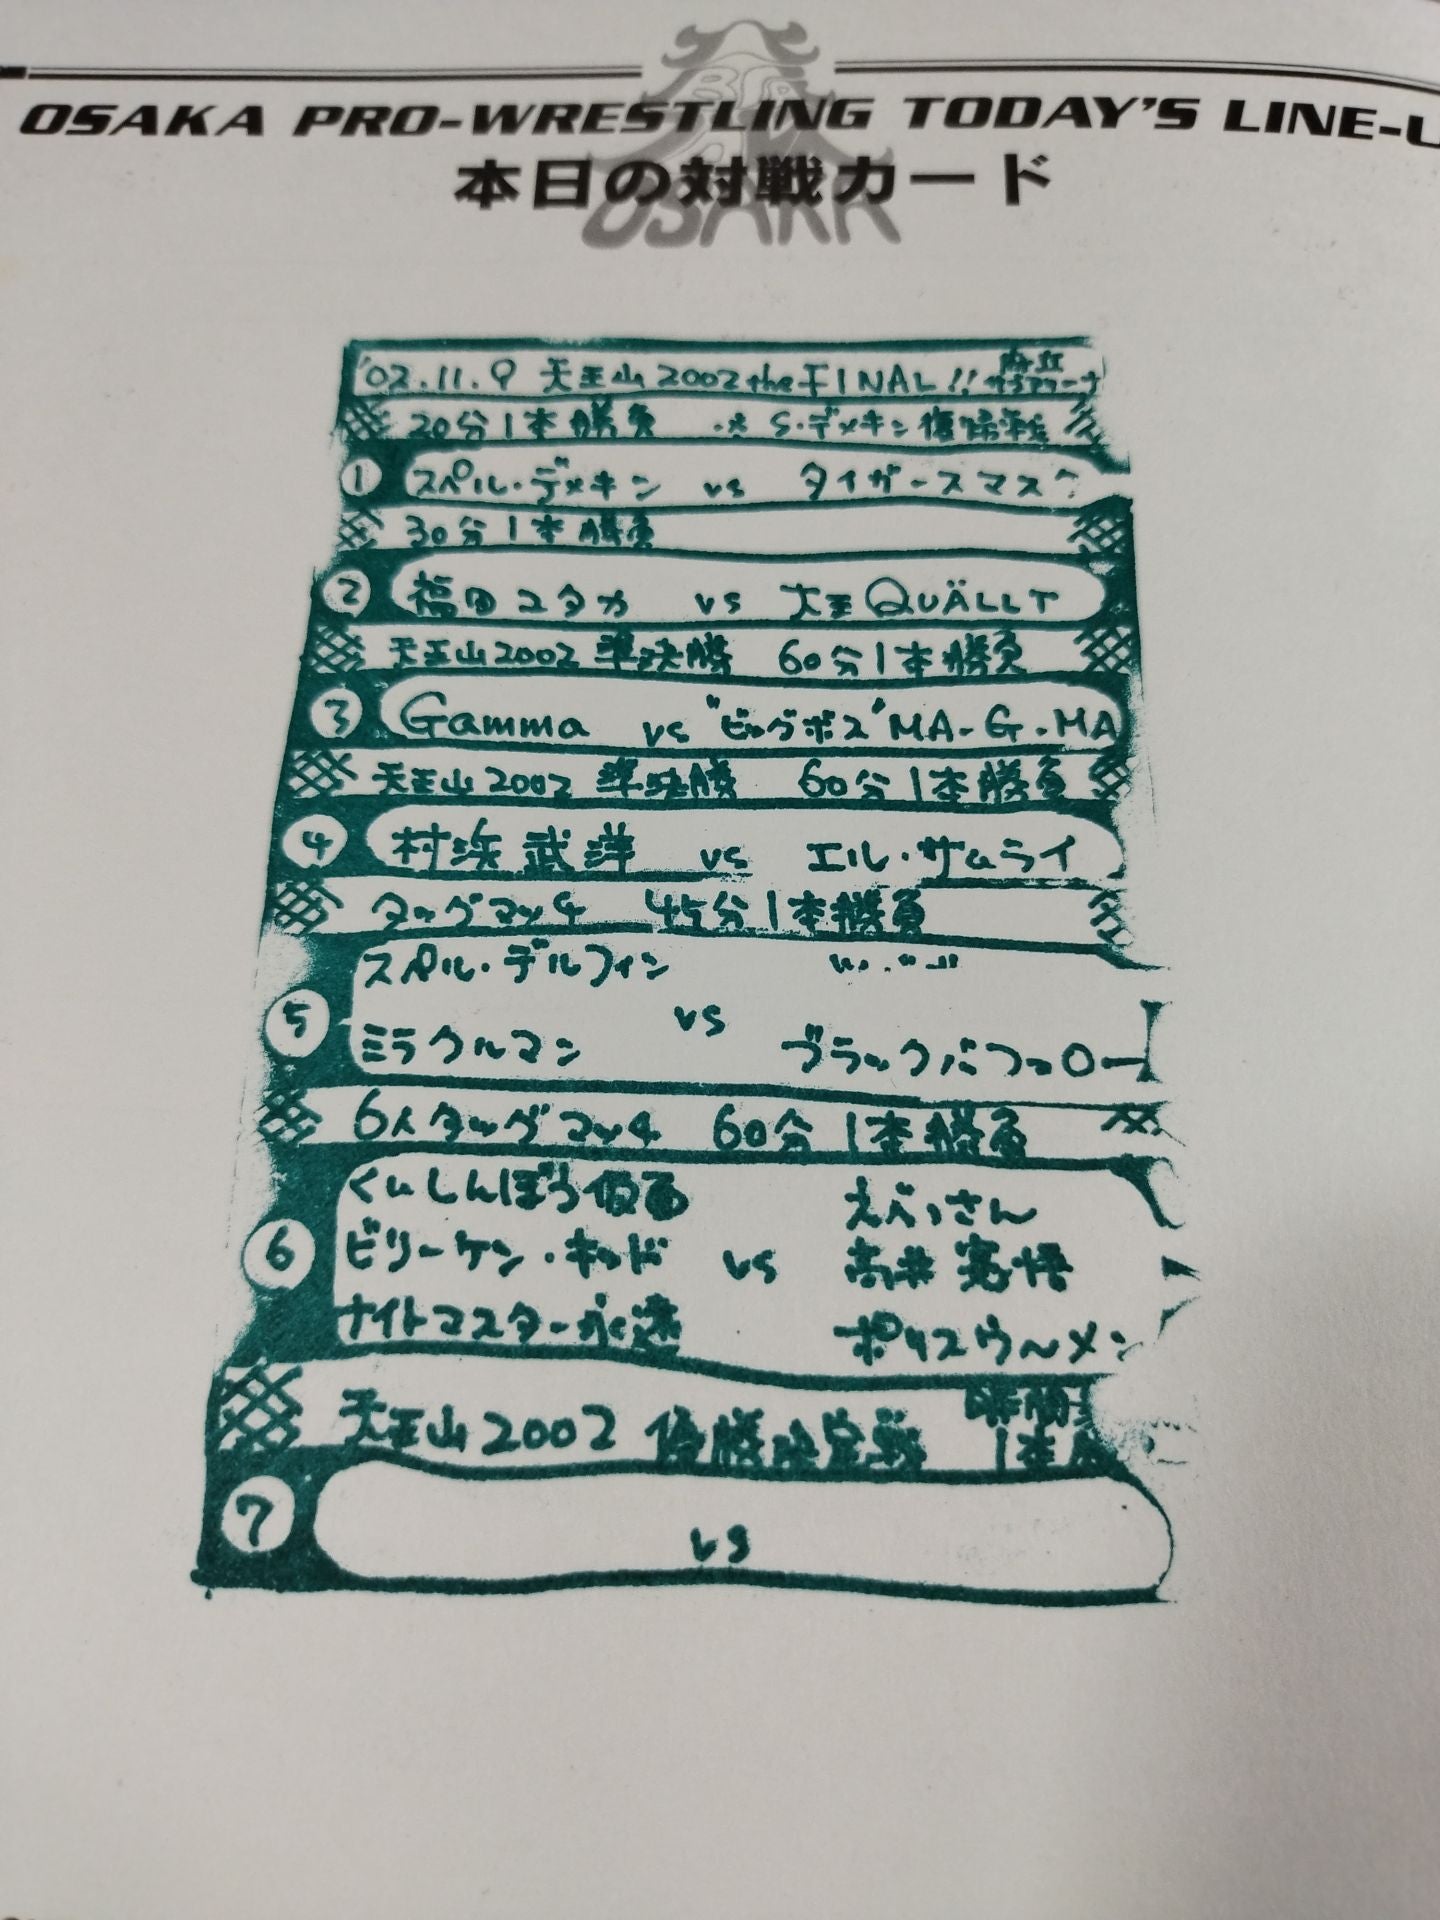 OSAKA PRO-WRESTLING TODAY'S LINE-U
本日の対戦カード
OSAKA
'02.11.9 天王山2002 the FINAL!!
20分1本勝負 S・デメキン復帰戦
① スペル・デメキン vs タイガースマス
30分1本勝負
② 福田ユタカ vs 大王QUÄLLT
天王山2002 準決勝 60分1本勝負
③ Gamma vs "ビッグボス"MA-G-MA
天王山2002 準決勝 60分1本勝負
④ 村浜武洋 vs エル・サムライ
タッグマッチ 45分1本勝負
⑤ スペル・デルフィン
vs
ミラクルマン ブラックバファロー
6人タッグマッチ 60分1本勝負
くいしんぼう仮面 えべっさん
⑥ ビリーケン・キッド vs 高井憲悟
ナイトマスター永遠 ポリスウ〜メン
天王山2002 優勝決定戦 時間
1本
⑦ vs